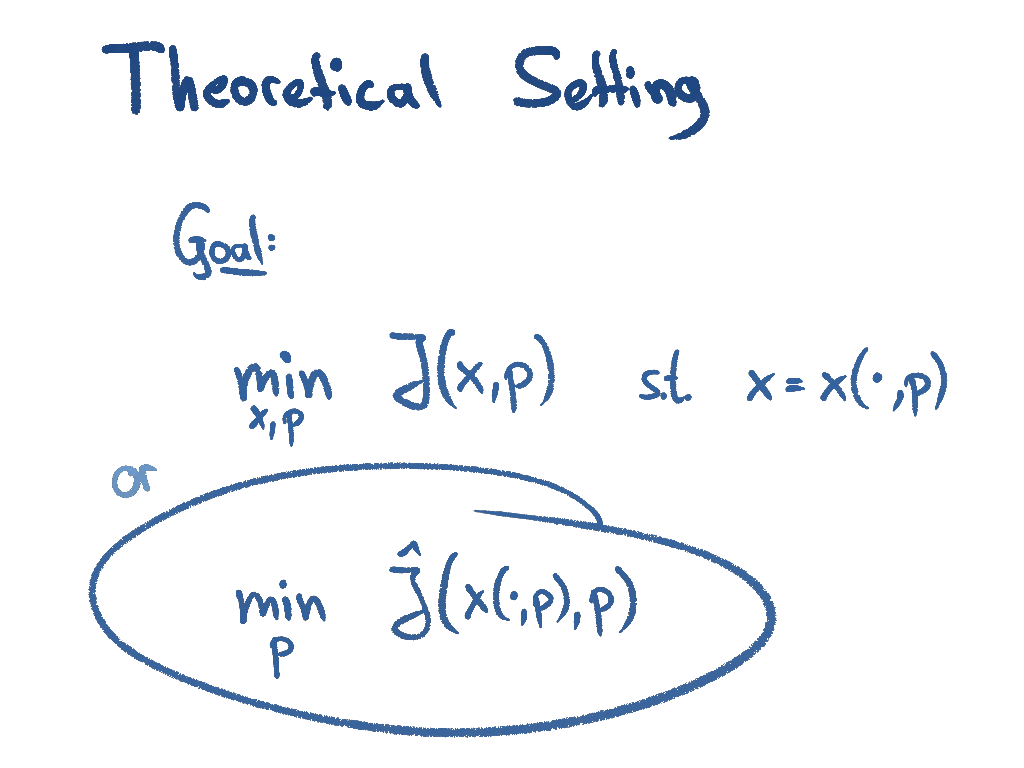 Theoretical Setting
Goal:
min J(x,p) s.t. x = x(·,p)
x,p
or
min Ĵ(x(·,p),p)
p